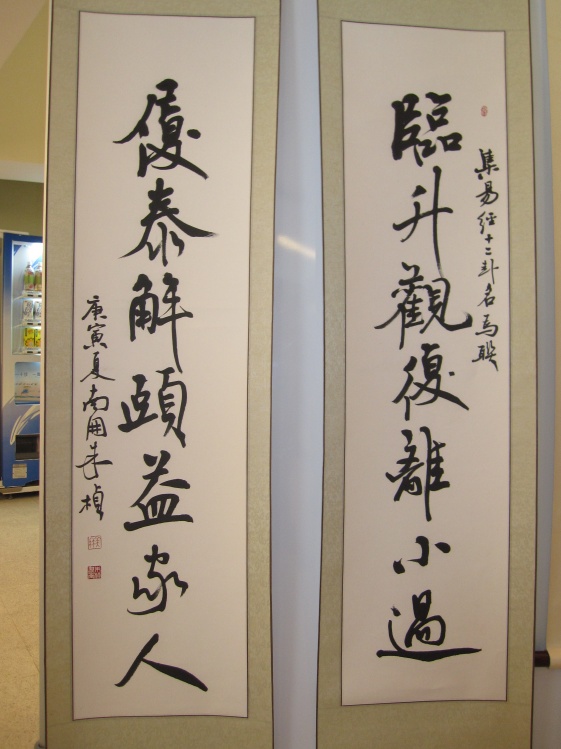 集易經十二卦名為聯
臨升觀復離小過
履泰解頤益家人
庚寅夏南開